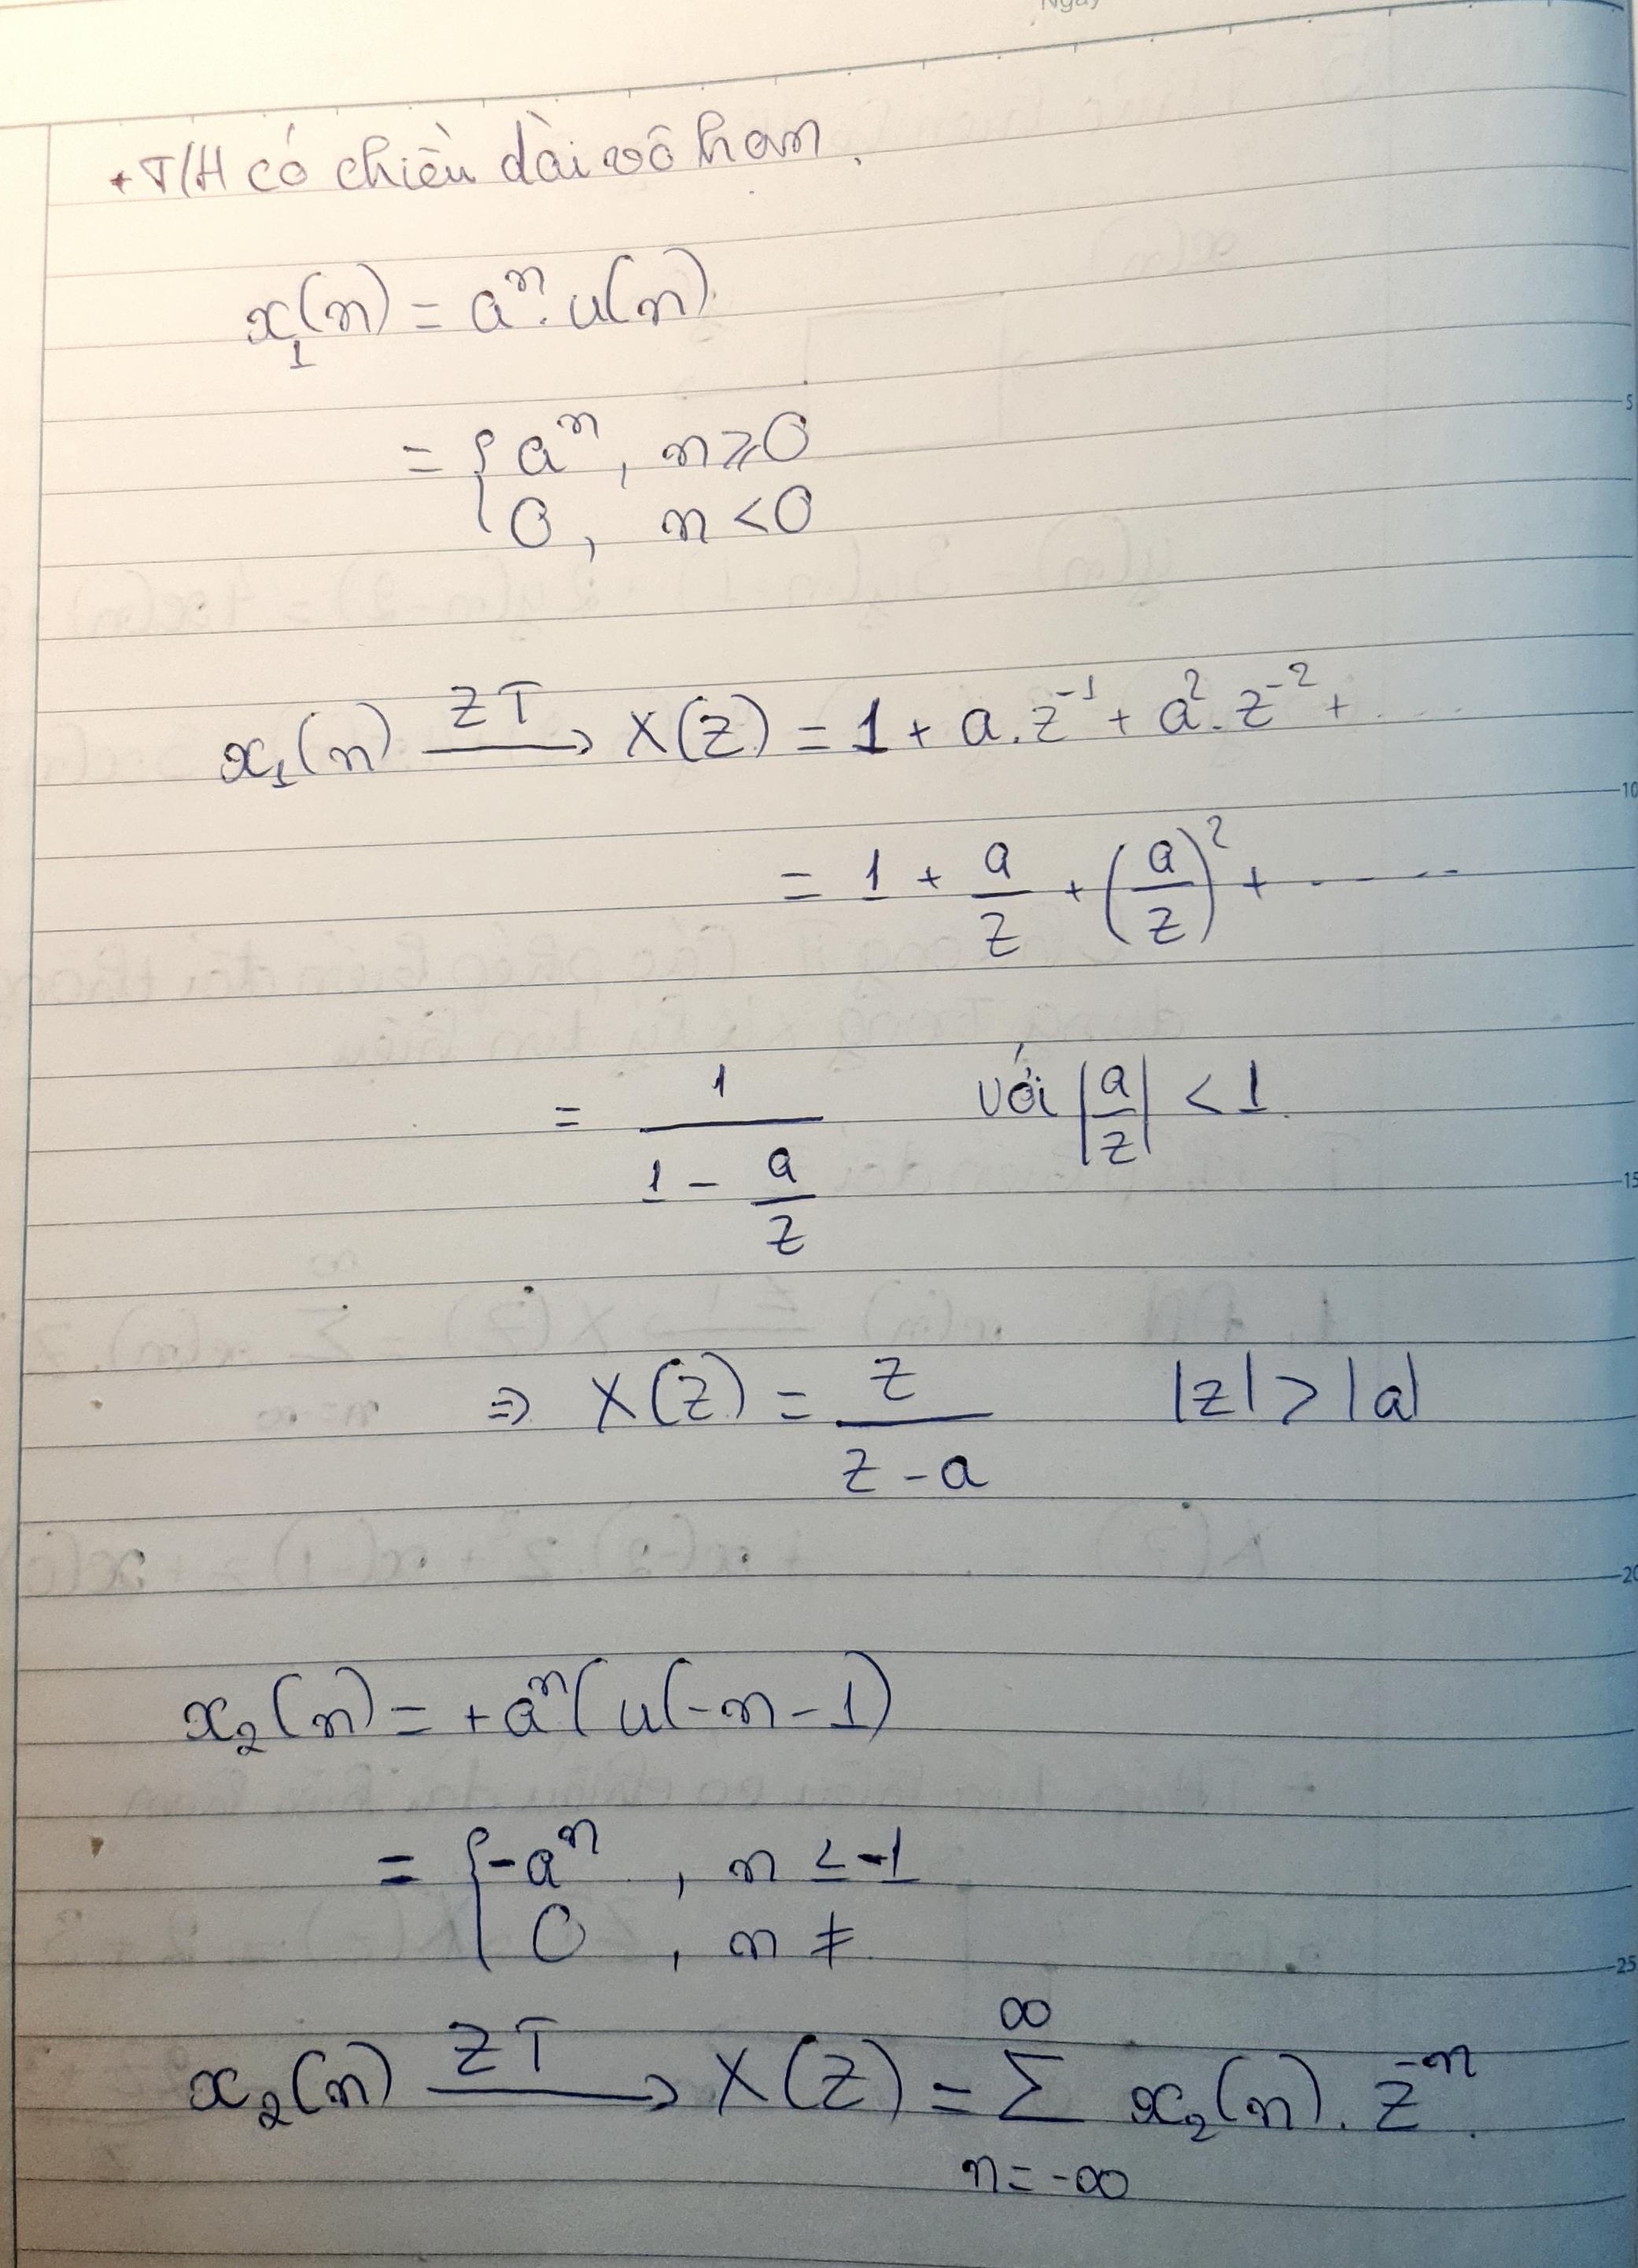 Ngày
+ T/H có chiều dài vô hạn.
x₁(n) = aⁿ. u(n).
= { aⁿ, n ⩾ 0
0, n < 0
x₁(n) ZT→ X(z) = 1 + a.z⁻¹ + a².z⁻² + ....
= 1 + a/z + (a/z)² + - - - --
= 1/(1 - a/z) với |a/z| < 1.
⇒ X(z) = z/(z - a) |z| > |a|
x₂(n) = +aⁿ(u(-n-1)
= { -aⁿ, n ≤ -1
0, n ≠
x₂(n) ZT→ X(z) = ∑ n=-∞ ∞ x₂(n). z⁻ⁿ.
5
10
15
20
25